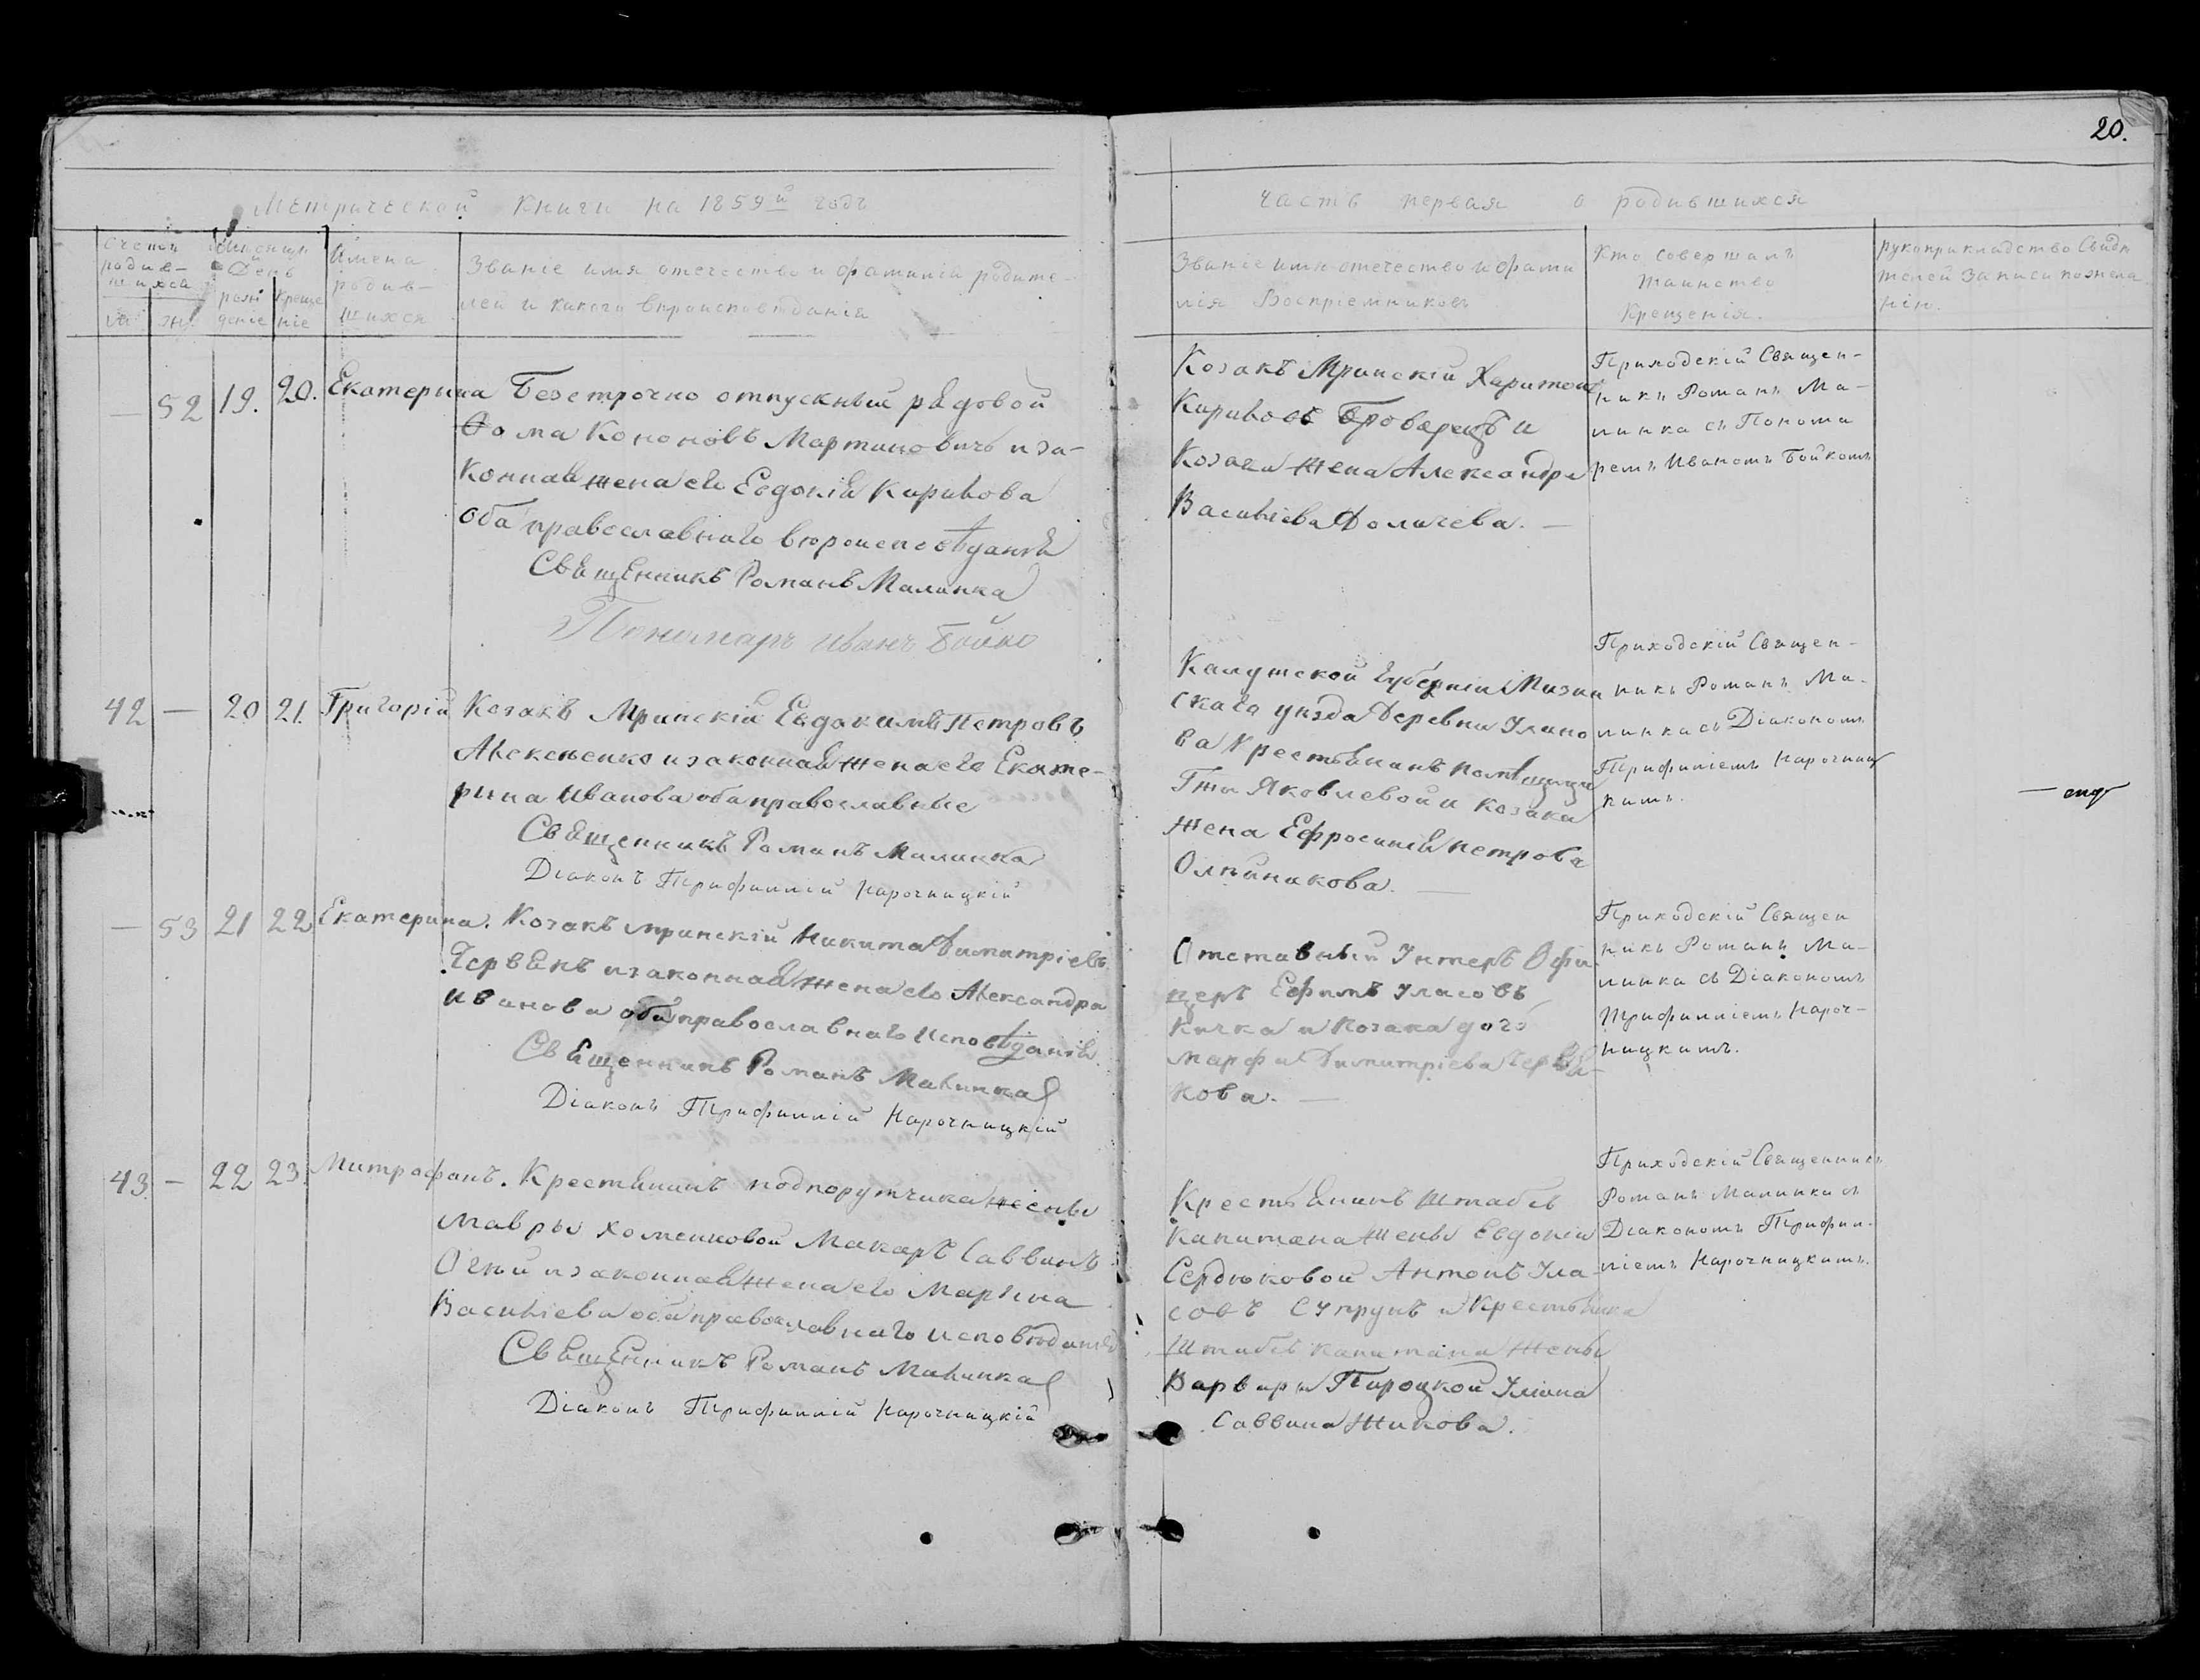 20.
Метрической книги на 1859й годъ
часть первая о родившихся
Счетъ родив-
шихся
Мѣсяцъ и День
рожденіе
крещеніе
Имена
родив-
шихся
Званіе имя отечество и фамилія родите-
лей и какого вѣроисповѣданія
Званіе имя отечество и фами
лія Воспріемниковъ
Кто совершалъ
таинство
Крещенія.
рукоприкладство Свидѣ
телей записи по жела
нію.
— 52 19. 20. Екатерина Безсрочно отпускный рядовой
Фома Кононовъ Мартиновичъ и за-
конная жена его Евдокія Кирилова
оба православнаго вѣроисповѣданія
Священникъ Романъ Малинка
Пономарь Иванъ Бойко
Козакъ Мринскій Харитонъ
Кириловъ Броварецъ и
Козака жена Александра
Василіева Доличева. —
Приходскій Священ-
никъ Романъ Ма-
линка съ Понома
ремъ Иваномъ Бойкомъ
42 — 20 21. Григорій Козакъ Мринскій Евдокимъ Петровъ
Алексѣенко и законная жена его Екате-
рина Иванова оба православные
Священникъ Романъ Малинка
Діаконъ Трифиллій Нарочницкій
Калужской губерніи Мизин
скаго уѣзда Деревни Улино
ва Крестьянинъ помѣщицы
Яковлевой и козака
жена Ефросинія Петрова
Олѣйникова. —
Приходскій Священ-
никъ Романъ Ма-
линка съ Діакономъ
Трифиліемъ Нарочниц
кимъ.
— 53 21 22 Екатерина. Козакъ мринскій Никита Димитріевъ
Червякъ и законная жена его Александра
Иванова оба православнаго исповѣданія
Священникъ Романъ Малинка
Діаконъ Трифиллій Нарочницкій
Отставный Унтеръ Офи-
церъ Ефимъ Уласовъ
Кичка и козака дочь
Марфа Димитріева Червя-
кова. —
Приходскій Священ
никъ Романъ Ма-
линка съ Діакономъ
Трифилліемъ Нароч-
ницкимъ.
43. — 22 23. Митрофанъ. Крестьянинъ подпорутчика жены
Мавры Хоменковой Макаръ Саввинъ
Огѣй и законная жена его Марѳина
Василіева оба православнаго исповѣданія
Священникъ Романъ Малинка
Діаконъ Трифиллій Нарочницкій
Крестьянинъ Штабсъ
Капитана жены Евдокіи
Сердюковой Антонъ Ула-
совъ Супрунъ и Крестьянка
Штабсъ капитана жены
Варвары Пироцкой Уліана
Саввина Жикова.
Приходскій Священникъ
Романъ Малинка съ
Діакономъ Трифил-
ліемъ Нарочницкимъ.